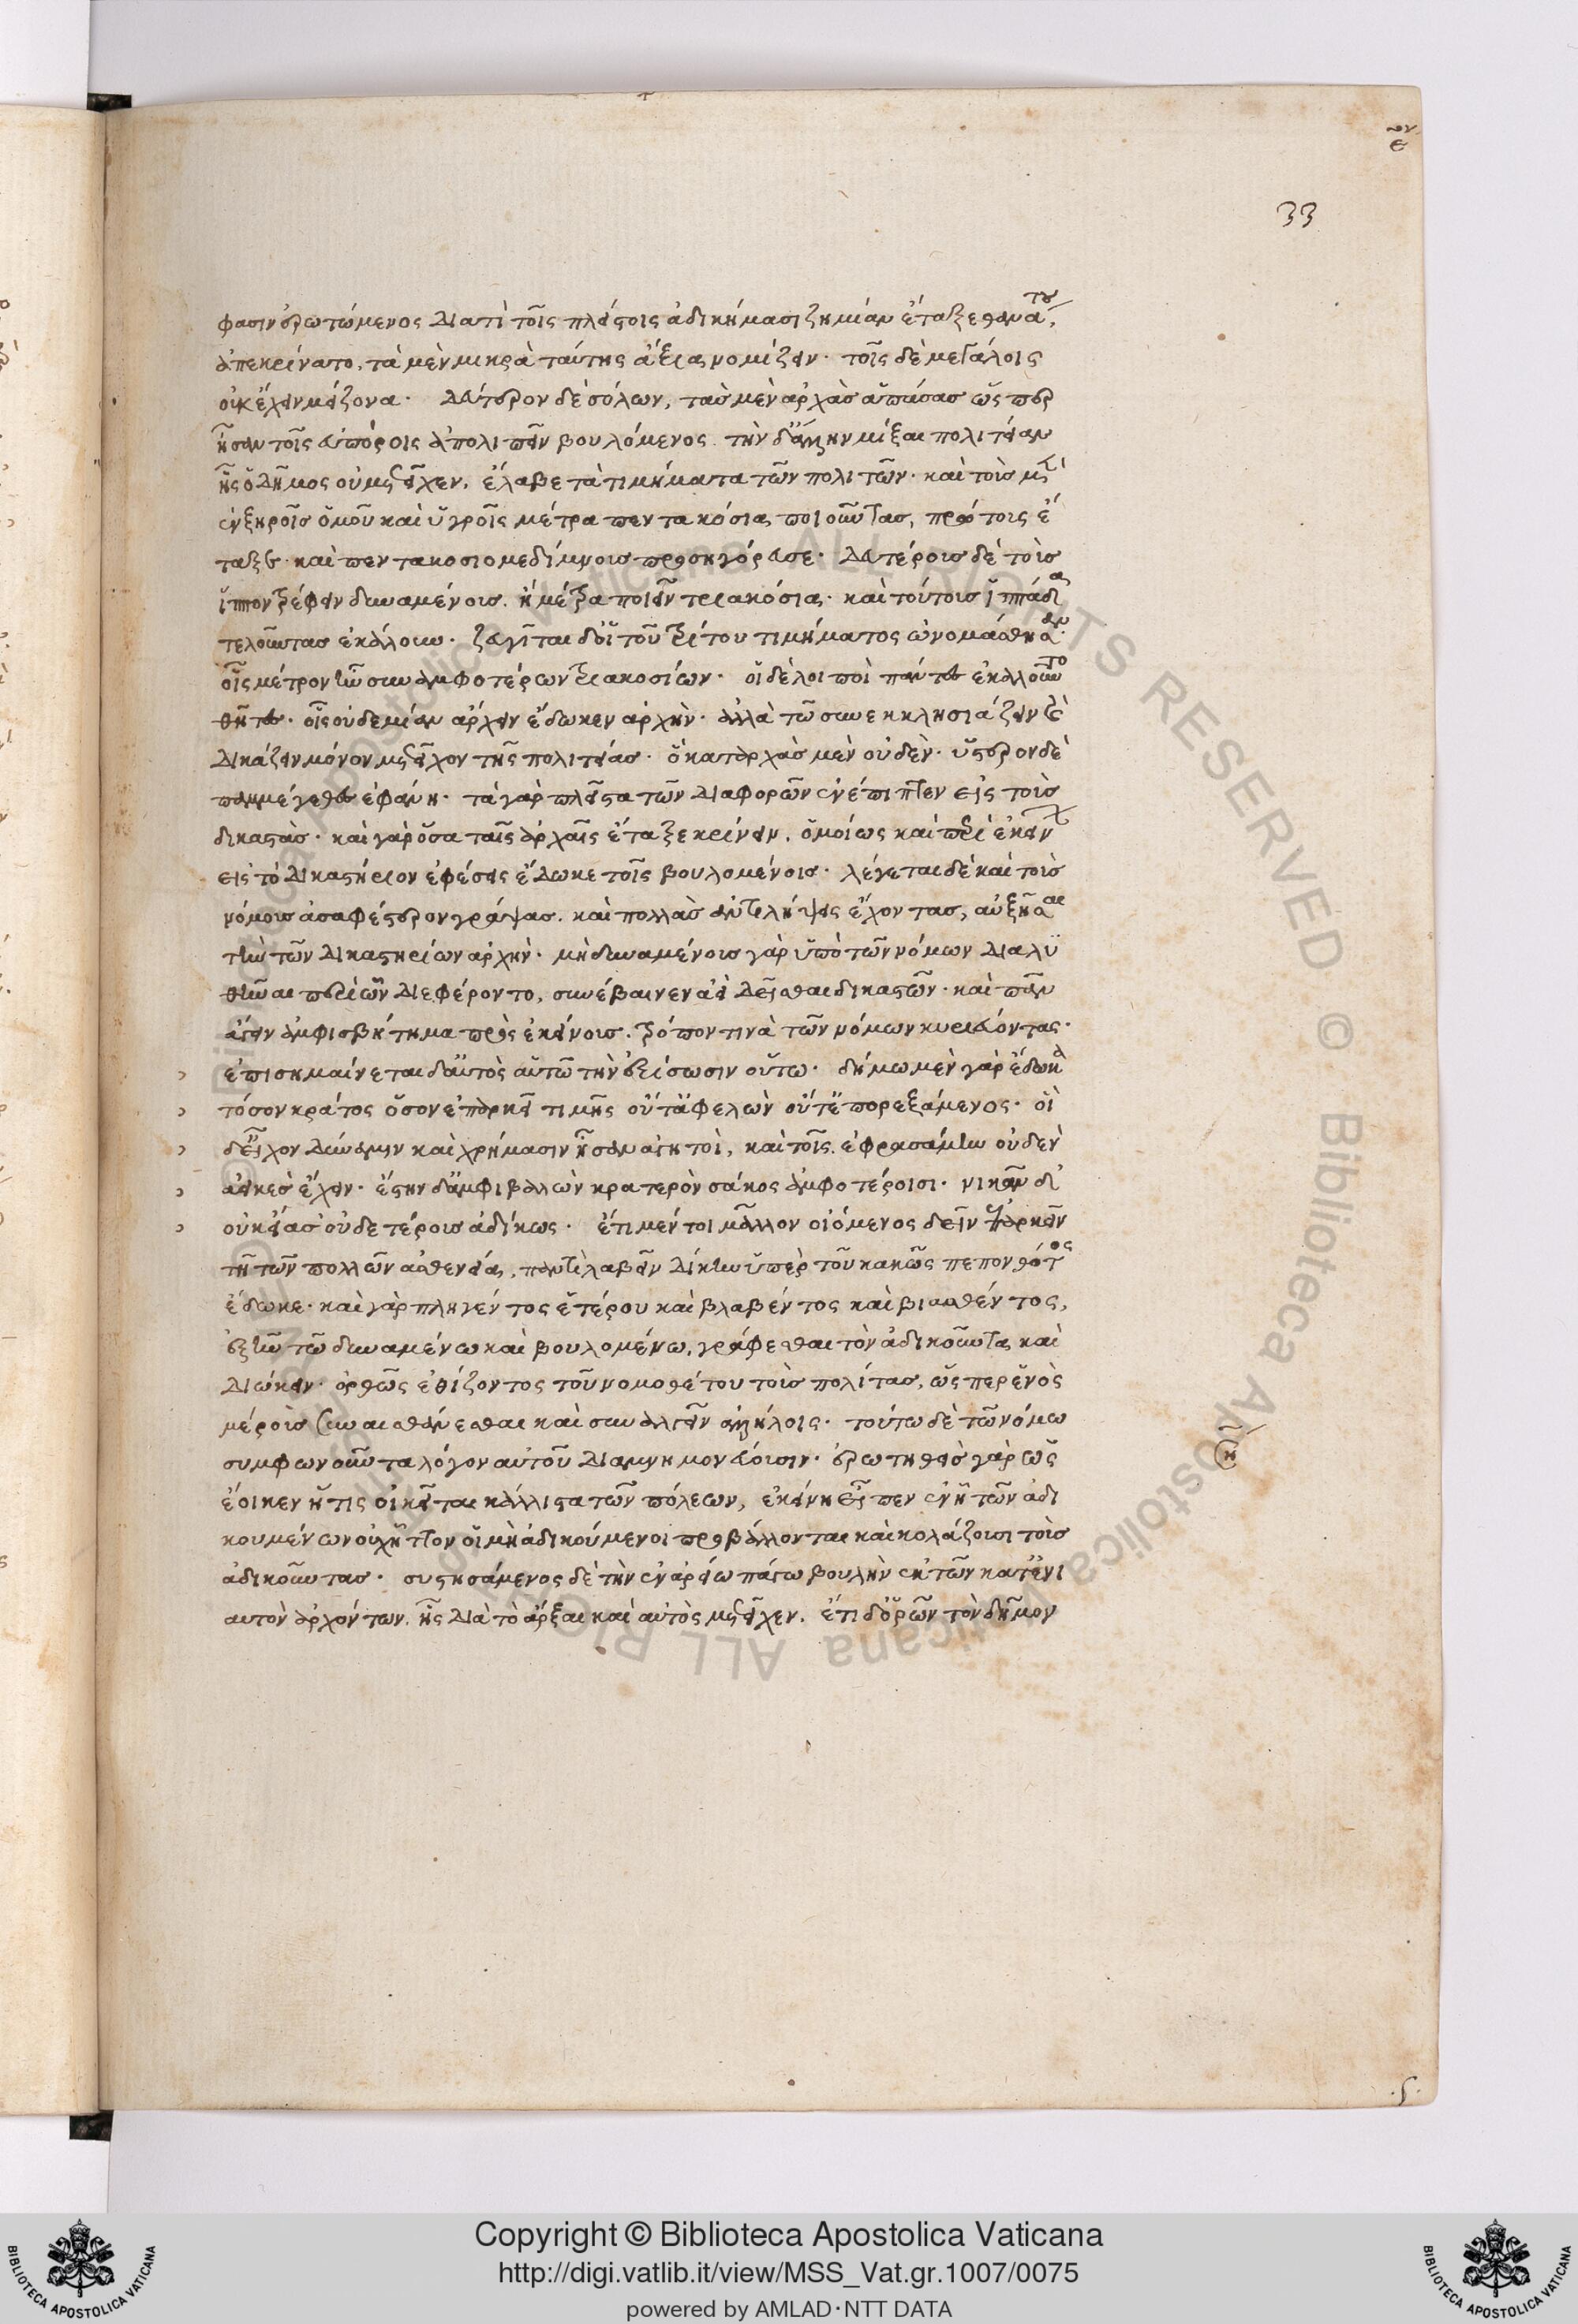 33
φασιν ἐρωτώμενος διατί τοῖς πλείστοις ἀδικήμασι ζημίαν ἔταξε θάνατον,
ἀπεκρίνατο, τὰ μὲν μικρὰ ταύτης ἄξια νομίζειν· τοῖς δὲ μεγάλοις
οὐκ ἔχειν μείζονα· δεύτερον δὲ σόλων, τὰς μὲν ἀρχὰς ἁπάσας ὥσπερ
ἦσαν τοῖς εὐπόροις ἀπολιπεῖν βουλόμενος. τὴν δ' ἄλλην μίξαι πολιτείαν
ἧς ὁ δῆμος οὐ μετεῖχεν, ἔλαβε τὰ τιμήματα τῶν πολιτῶν· καὶ τοὺς μὲν
ἐν ξηροῖς ὁμοῦ καὶ ὑγροῖς μέτρα πεντακόσια ποιοῦντας, πρώτους ἔ
ταξε· καὶ πεντακοσιομεδίμνους προσηγόρευσε· δευτέρους δὲ τοὺς
ἵππον τρέφειν δυναμένους. ἢ μέτρα ποιεῖν τριακόσια· καὶ τούτους ἱππάδα
τελοῦντας ἐκάλουν· ζευγῖται δ' οἱ τοῦ τρίτου τιμήματος ὠνομάσθησαν·
οἷς μέτρον ἦν συναμφοτέρων τριακοσίων· οἱ δὲ λοιποὶ πάντες ἐκαλοῦντο
θῆτες· οἷς οὐδεμίαν ἄρχειν ἔδωκεν ἀρχήν· ἀλλὰ τῷ συνεκκλησιάζειν καὶ
δικάζειν μόνον μετεῖχον τῆς πολιτείας· ὃ κατ' ἀρχὰς μὲν οὐδέν· ὕστερον δὲ
παμμέγεθες ἐφάνη· τὰ γὰρ πλεῖστα τῶν διαφορῶν ἐνέπιπτεν εἰς τοὺς
δικαστάς· καὶ γὰρ ὅσα ταῖς ἀρχαῖς ἔταξε κρίνειν, ὁμοίως καὶ περὶ ἐκείνων
εἰς τὸ δικαστήριον ἐφέσεις ἔδωκε τοῖς βουλομένοις· λέγεται δὲ καὶ τοὺς
νόμους ἀσαφέστερον γράψας. καὶ πολλὰς ἀντιλήψεις ἔχοντας, αὐξῆσαι
τὴν τῶν δικαστηρίων ἀρχήν· μὴ δυναμένους γὰρ ὑπὸ τῶν νόμων διαλυ
θῆναι περὶ ὧν διεφέροντο, συνέβαινεν ἀεὶ δεῖσθαι δικαστῶν· καὶ πᾶν
ἄγειν ἀμφισβήτημα πρὸς ἐκείνους. τρόπον τινὰ τῶν νόμων κυριεύοντας·
ἐπισημαίνεται δ' αὐτὸς αὑτῷ τὴν ἀξίωσιν οὕτω· δήμῳ μὲν γὰρ ἔδωκα
τόσον κράτος ὅσον ἐπαρκεῖ τιμῆς οὔτ' ἀφελὼν οὔτ' ἐπορεξάμενος· οἳ
δ' εἶχον δύναμιν καὶ χρήμασιν ἦσαν ἀγητοί, καὶ τοῖς ἐφρασάμην οὐδὲν
ἀεικὲς ἔχειν· ἔστην δ' ἀμφιβαλὼν κρατερὸν σάκος ἀμφοτέροισι· νικᾶν δ'
οὐκ εἴασ' οὐδετέρους ἀδίκως· ἔτι μέντοι μᾶλλον οἰόμενος δεῖν ἐπαρκεῖν
τῇ τῶν πολλῶν ἀσθενείᾳ, παντὶ λαβεῖν δίκην ὑπὲρ τοῦ κακῶς πεπονθότος
ἔδωκε· καὶ γὰρ πληγέντος ἑτέρου καὶ βλαβέντος καὶ βιασθέντος,
ἐξῆν τῷ δυναμένῳ καὶ βουλομένῳ, γράφεσθαι τὸν ἀδικοῦντα καὶ
διώκειν· ὀρθῶς ἐθίζοντος τοῦ νομοθέτου τοὺς πολίτας, ὥσπερ ἑνὸς
μέρους συναισθάνεσθαι καὶ συναλγεῖν ἀλλήλοις· τούτῳ δὲ τῷ νόμῳ
συμφωνοῦντα λόγον αὐτοῦ διαμνημονεύουσιν· ἐρωτηθεὶς γὰρ ὡς
ἔοικεν ἥτις οἰκεῖται κάλλιστα τῶν πόλεων, ἐκείνη εἶπεν ἐν ᾗ τῶν ἀδι
κουμένων οὐχ ἧττον οἱ μὴ ἀδικούμενοι προβάλλονται καὶ κολάζουσι τοὺς
ἀδικοῦντας· συστησάμενος δὲ τὴν ἐν ἀρείῳ πάγῳ βουλὴν ἐκ τῶν κατ' ἐνι
αυτὸν ἀρχόντων. ἧς διὰ τὸ ἄρξαι καὶ αὐτὸς μετεῖχεν. ἔτι δ' ὁρῶν τὸν δῆμον
Copyright © Biblioteca Apostolica Vaticana
http://digi.vatlib.it/view/MSS_Vat.gr.1007/0075
powered by AMLAD·NTT DATA
BIBLIOTECA APOSTOLICA VATICANA
BIBLIOTECA APOSTOLICA VATICANA